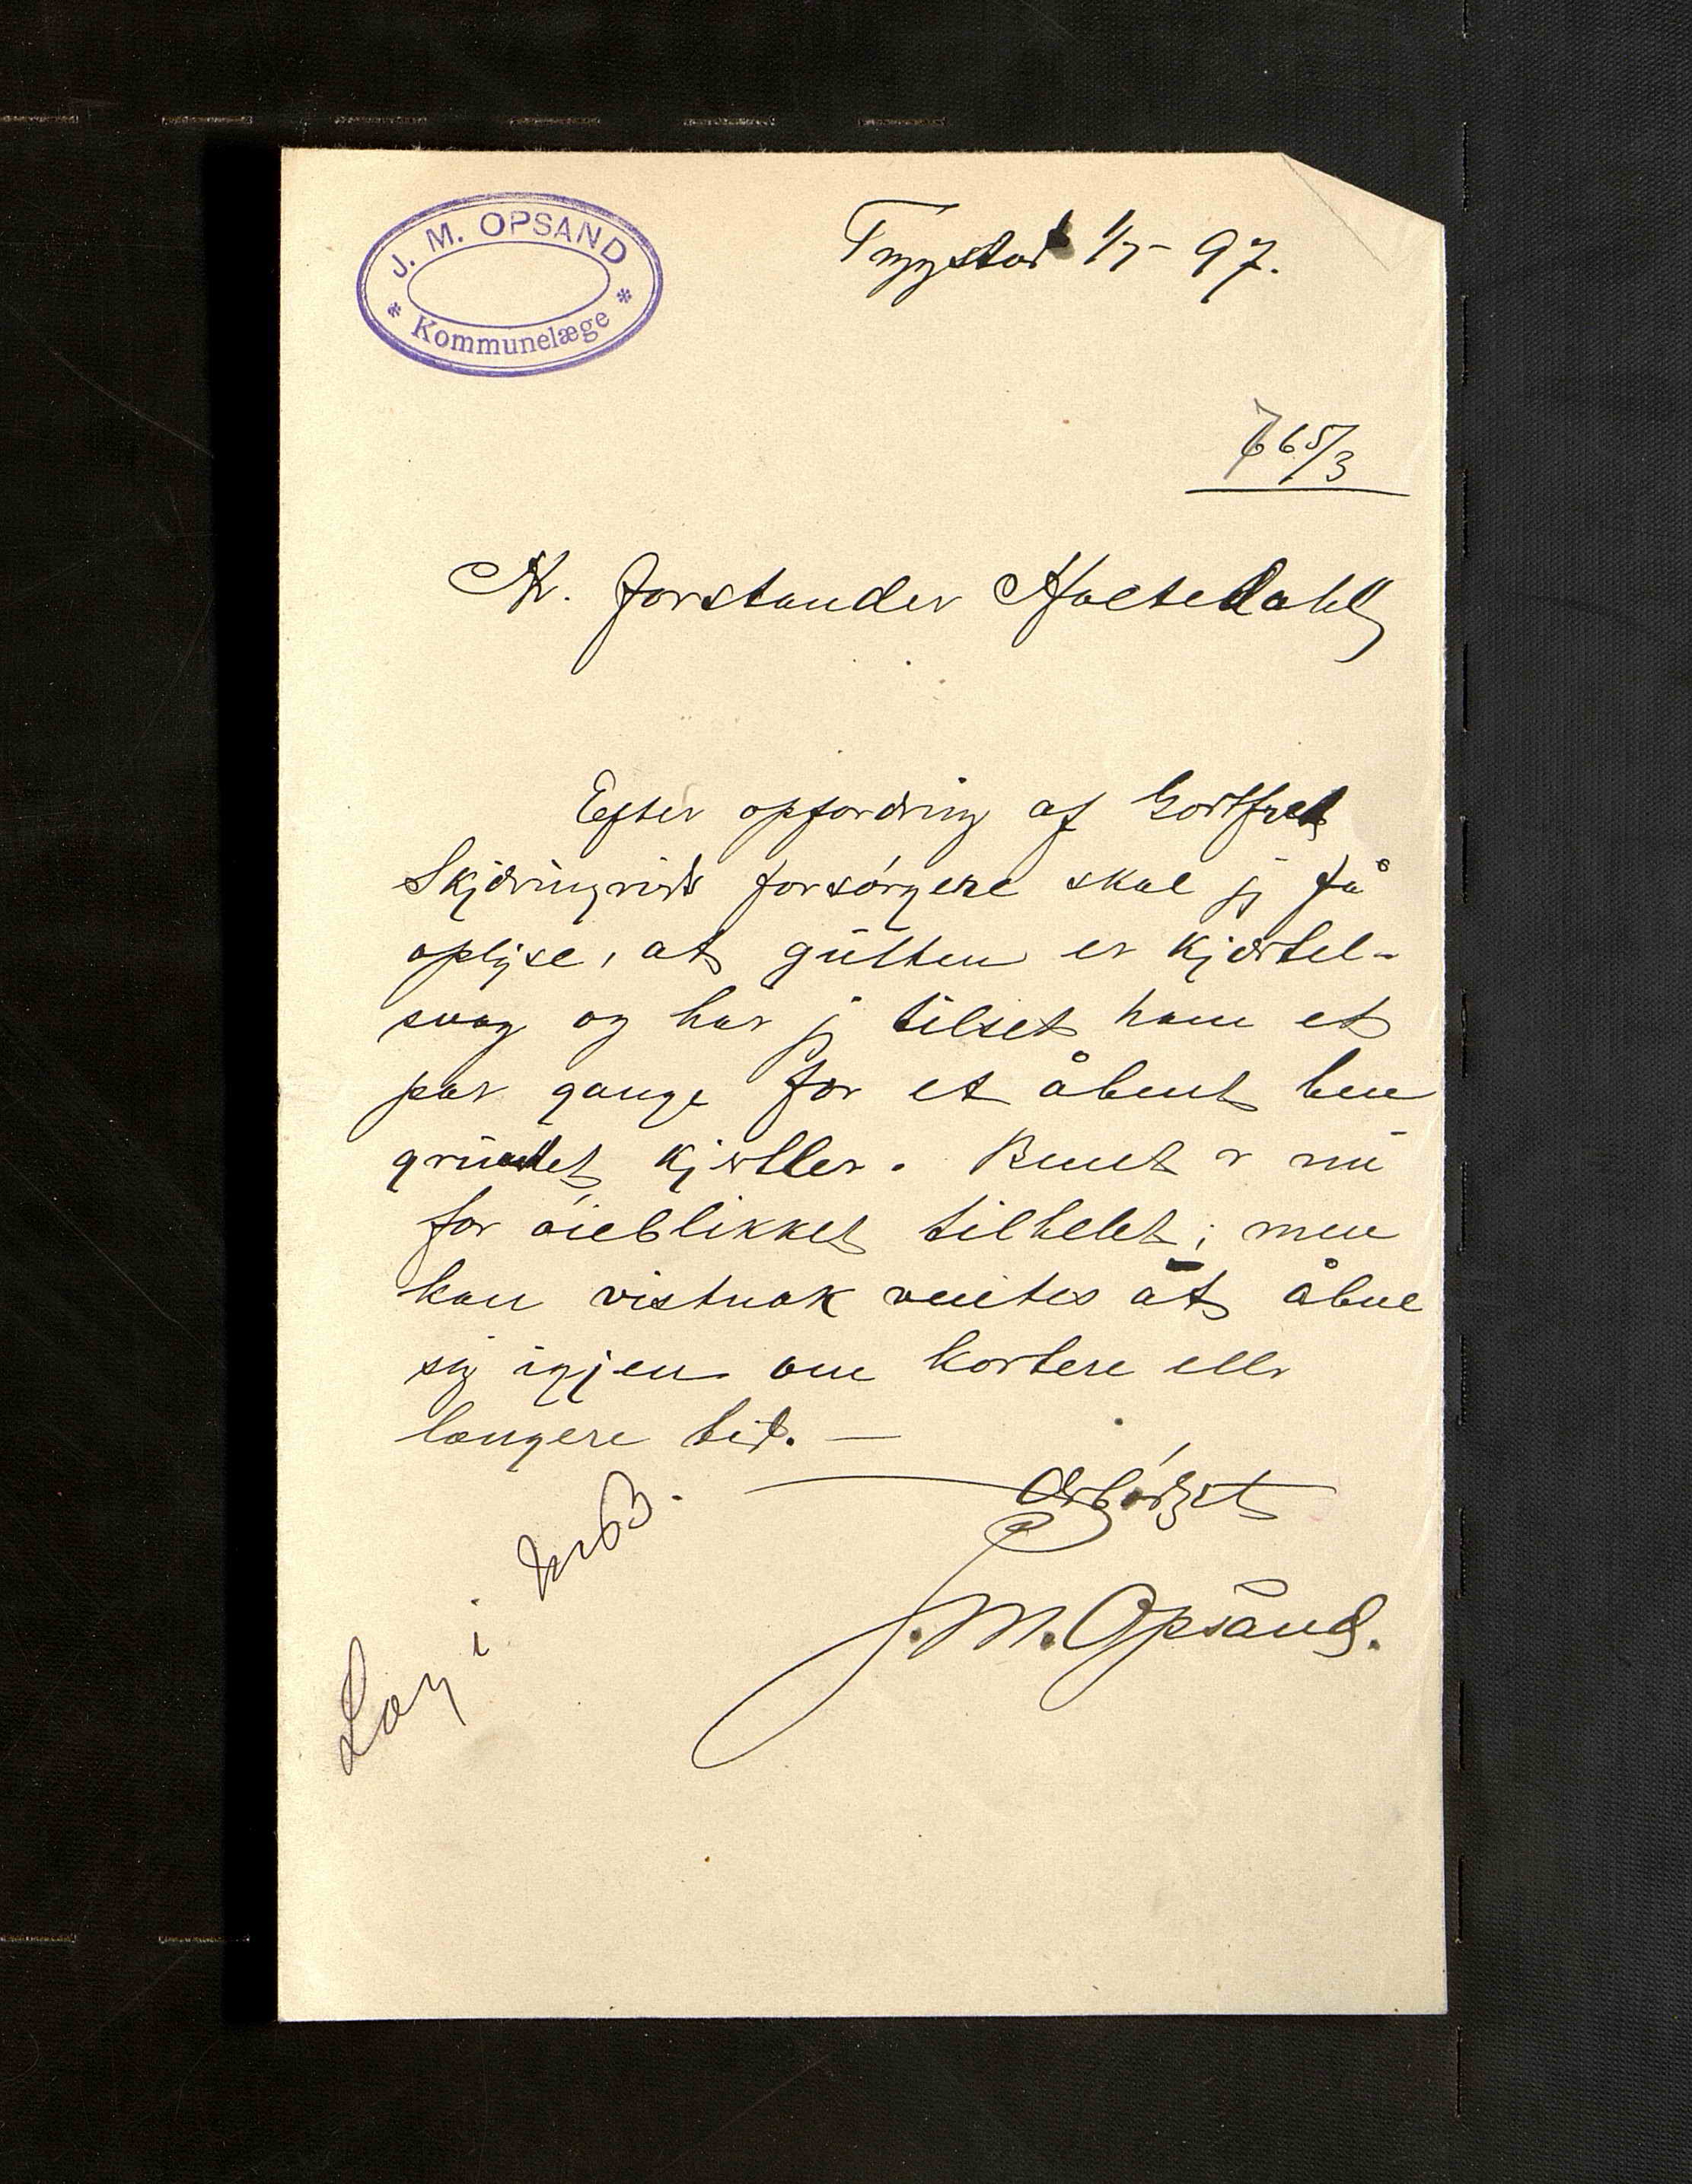 J. M. OPSAND
* Kommunelæge *
Trygstad 1/7-97.
665/3
Hr. forstander Holtedahl
Efter opfordring af Gottfred
forsørgere skal jg få
oplyse, at gutten er kjertel-
svag og har jg tilset ham et
par gange for et åbent ben
grundet kjertler. Benet er nu
for øieblikket tilhelet; men
kan vistnok ventes at åbne
sig igjen om kortere eller
længere tid. —
Ærbødigst
J. M. Opsand.
Læg i